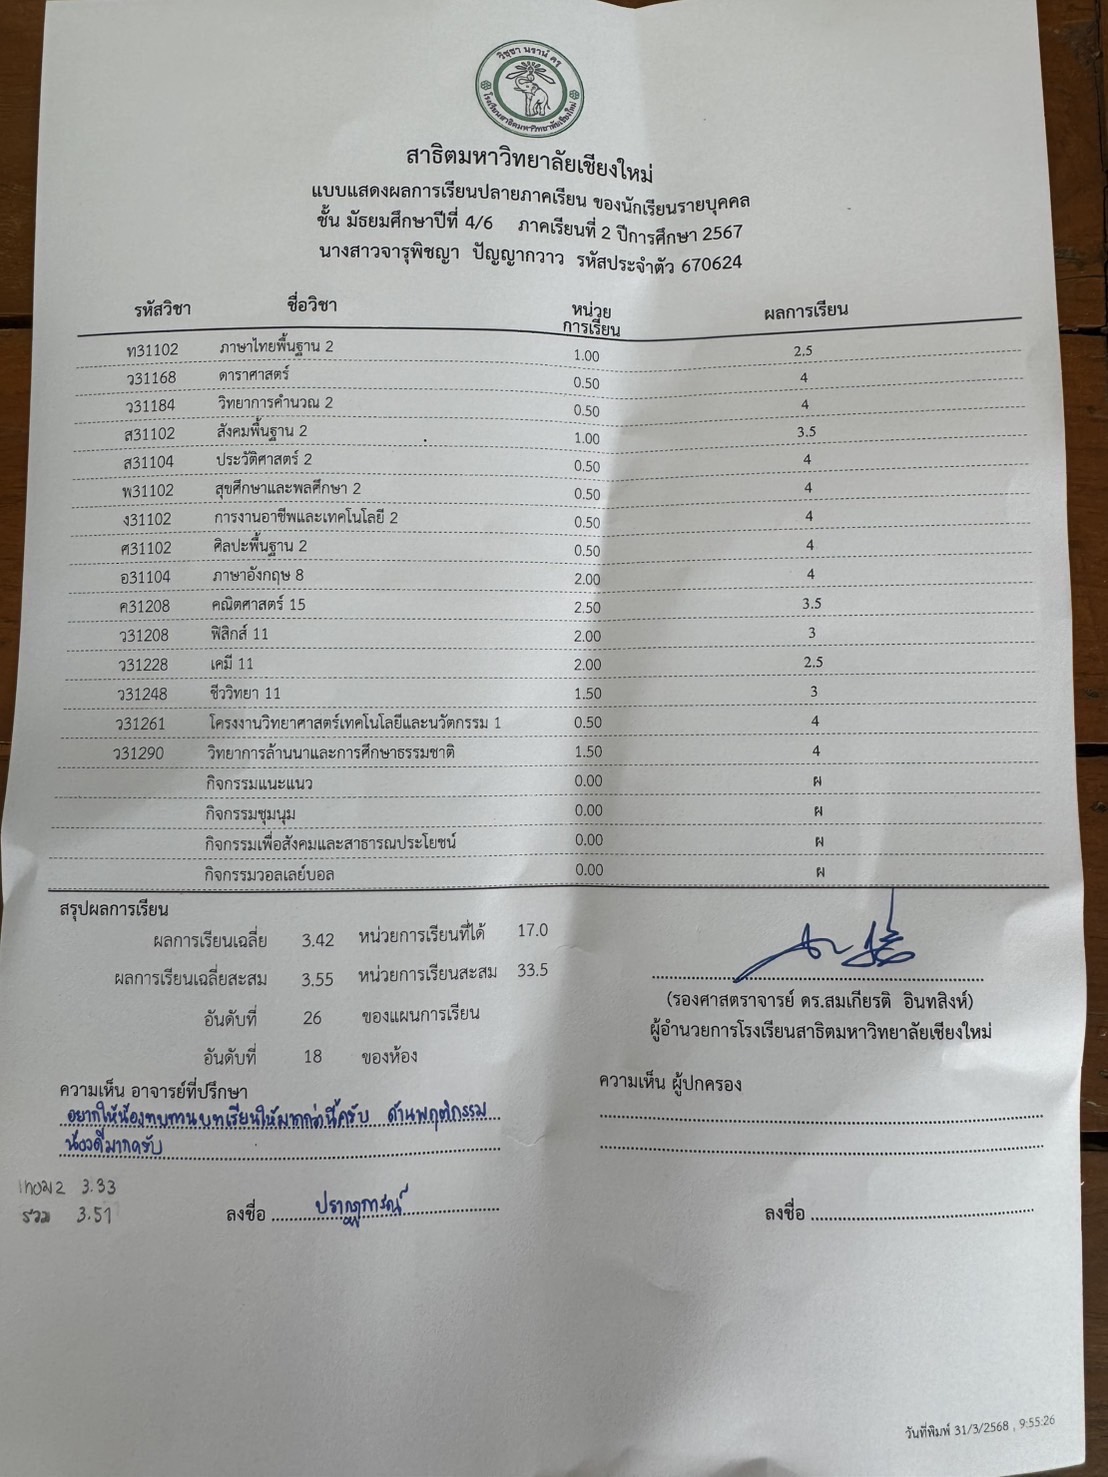 วิชชา นรานํ ครุ
โรงเรียนสาธิตมหาวิทยาลัยเชียงใหม่
สาธิตมหาวิทยาลัยเชียงใหม่
แบบแสดงผลการเรียนปลายภาคเรียน ของนักเรียนรายบุคคล
ชั้น มัธยมศึกษาปีที่ 4/6 ภาคเรียนที่ 2 ปีการศึกษา 2567
นางสาวจารุพิชญา ปัญญากวาว รหัสประจำตัว 670624
รหัสวิชา ชื่อวิชา หน่วยการเรียน ผลการเรียน
ท31102 ภาษาไทยพื้นฐาน 2 1.00 2.5
ว31168 ดาราศาสตร์ 0.50 4
ว31184 วิทยาการคำนวณ 2 0.50 4
ส31102 สังคมพื้นฐาน 2 1.00 3.5
ส31104 ประวัติศาสตร์ 2 0.50 4
พ31102 สุขศึกษาและพลศึกษา 2 0.50 4
ง31102 การงานอาชีพและเทคโนโลยี 2 0.50 4
ศ31102 ศิลปะพื้นฐาน 2 0.50 4
อ31104 ภาษาอังกฤษ 8 2.00 4
ค31208 คณิตศาสตร์ 15 2.50 3.5
ว31208 ฟิสิกส์ 11 2.00 3
ว31228 เคมี 11 2.00 2.5
ว31248 ชีววิทยา 11 1.50 3
ว31261 โครงงานวิทยาศาสตร์เทคโนโลยีและนวัตกรรม 1 0.50 4
ว31290 วิทยาการล้านนาและการศึกษาธรรมชาติ 1.50 4
กิจกรรมแนะแนว 0.00 ผ
กิจกรรมชุมนุม 0.00 ผ
กิจกรรมเพื่อสังคมและสาธารณประโยชน์ 0.00 ผ
กิจกรรมวอลเลย์บอล 0.00 ผ
สรุปผลการเรียน
ผลการเรียนเฉลี่ย 3.42 หน่วยการเรียนที่ได้ 17.0
ผลการเรียนเฉลี่ยสะสม 3.55 หน่วยการเรียนสะสม 33.5
อันดับที่ 26 ของแผนการเรียน
อันดับที่ 18 ของห้อง
(รองศาสตราจารย์ ดร.สมเกียรติ อินทสิงห์)
ผู้อำนวยการโรงเรียนสาธิตมหาวิทยาลัยเชียงใหม่
ความเห็น อาจารย์ที่ปรึกษา
อยากให้น้องทบทวนบทเรียนให้มากกว่านี้ครับ ด้านพฤติกรรม
น้องดีมากครับ
ความเห็น ผู้ปกครอง
เทอม 2 3.33
รวม 3.51
ลงชื่อ ปรากฏการณ์
ลงชื่อ
วันที่พิมพ์ 31/3/2568 , 9:55:26